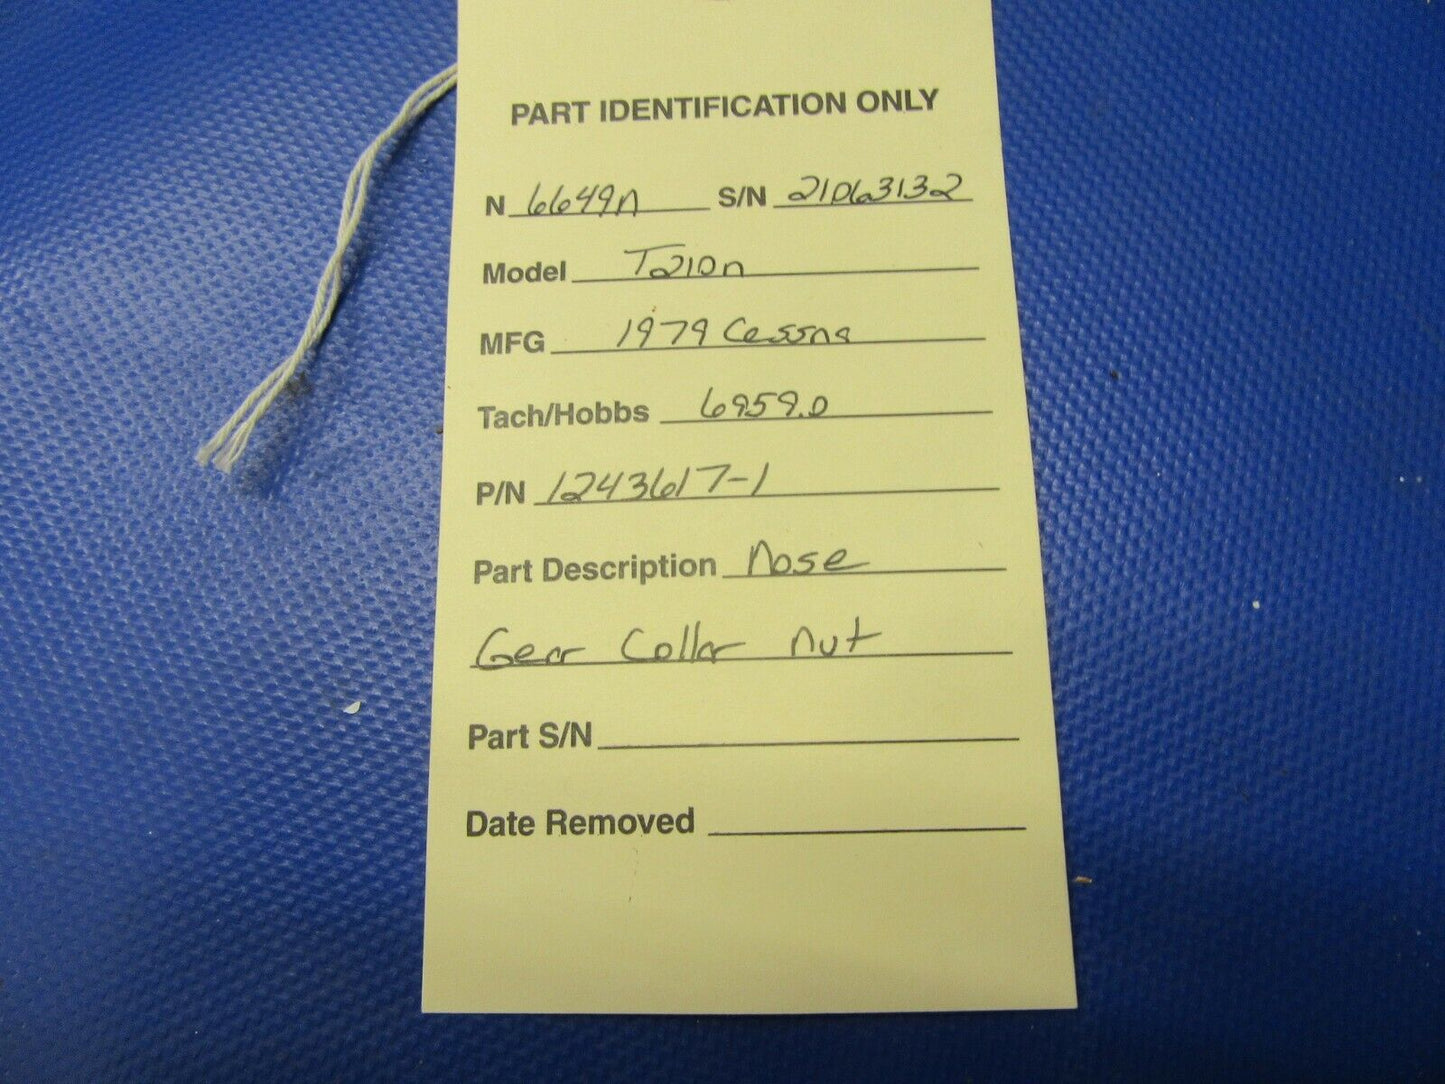 PART IDENTIFICATION ONLY
N 6649n S/N 21063132
Model T210n
MFG 1979 Cessna
Tach/Hobbs 6959.0
P/N 1243617-1
Part Description Nose
Gear Collar nut
Part S/N
Date Removed